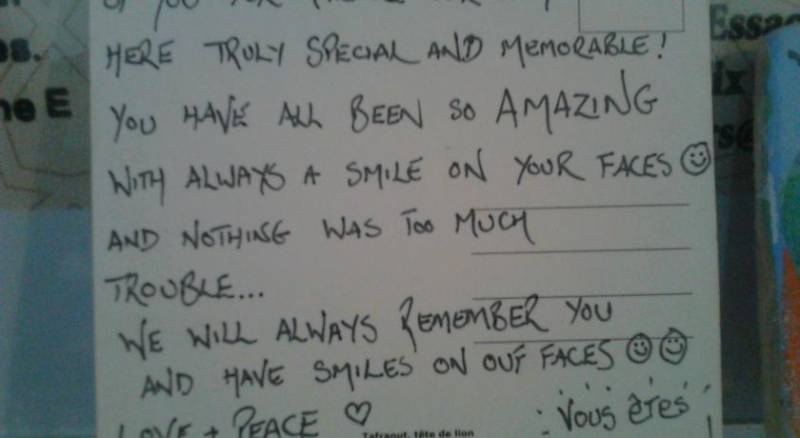 OF YOU FOR
HERE TRULY SPECIAL AND MEMORABLE!
YOU HAVE ALL BEEN SO AMAZING
WITH ALWAYS A SMILE ON YOUR FACES ☺
AND NOTHING WAS TOO MUCH
TROUBLE...
WE WILL ALWAYS REMEMBER YOU
AND HAVE SMILES ON OUR FACES ☺ ☺
LOVE + PEACE ♡
Vous êtes
Tafraout, tête de lion
Essao